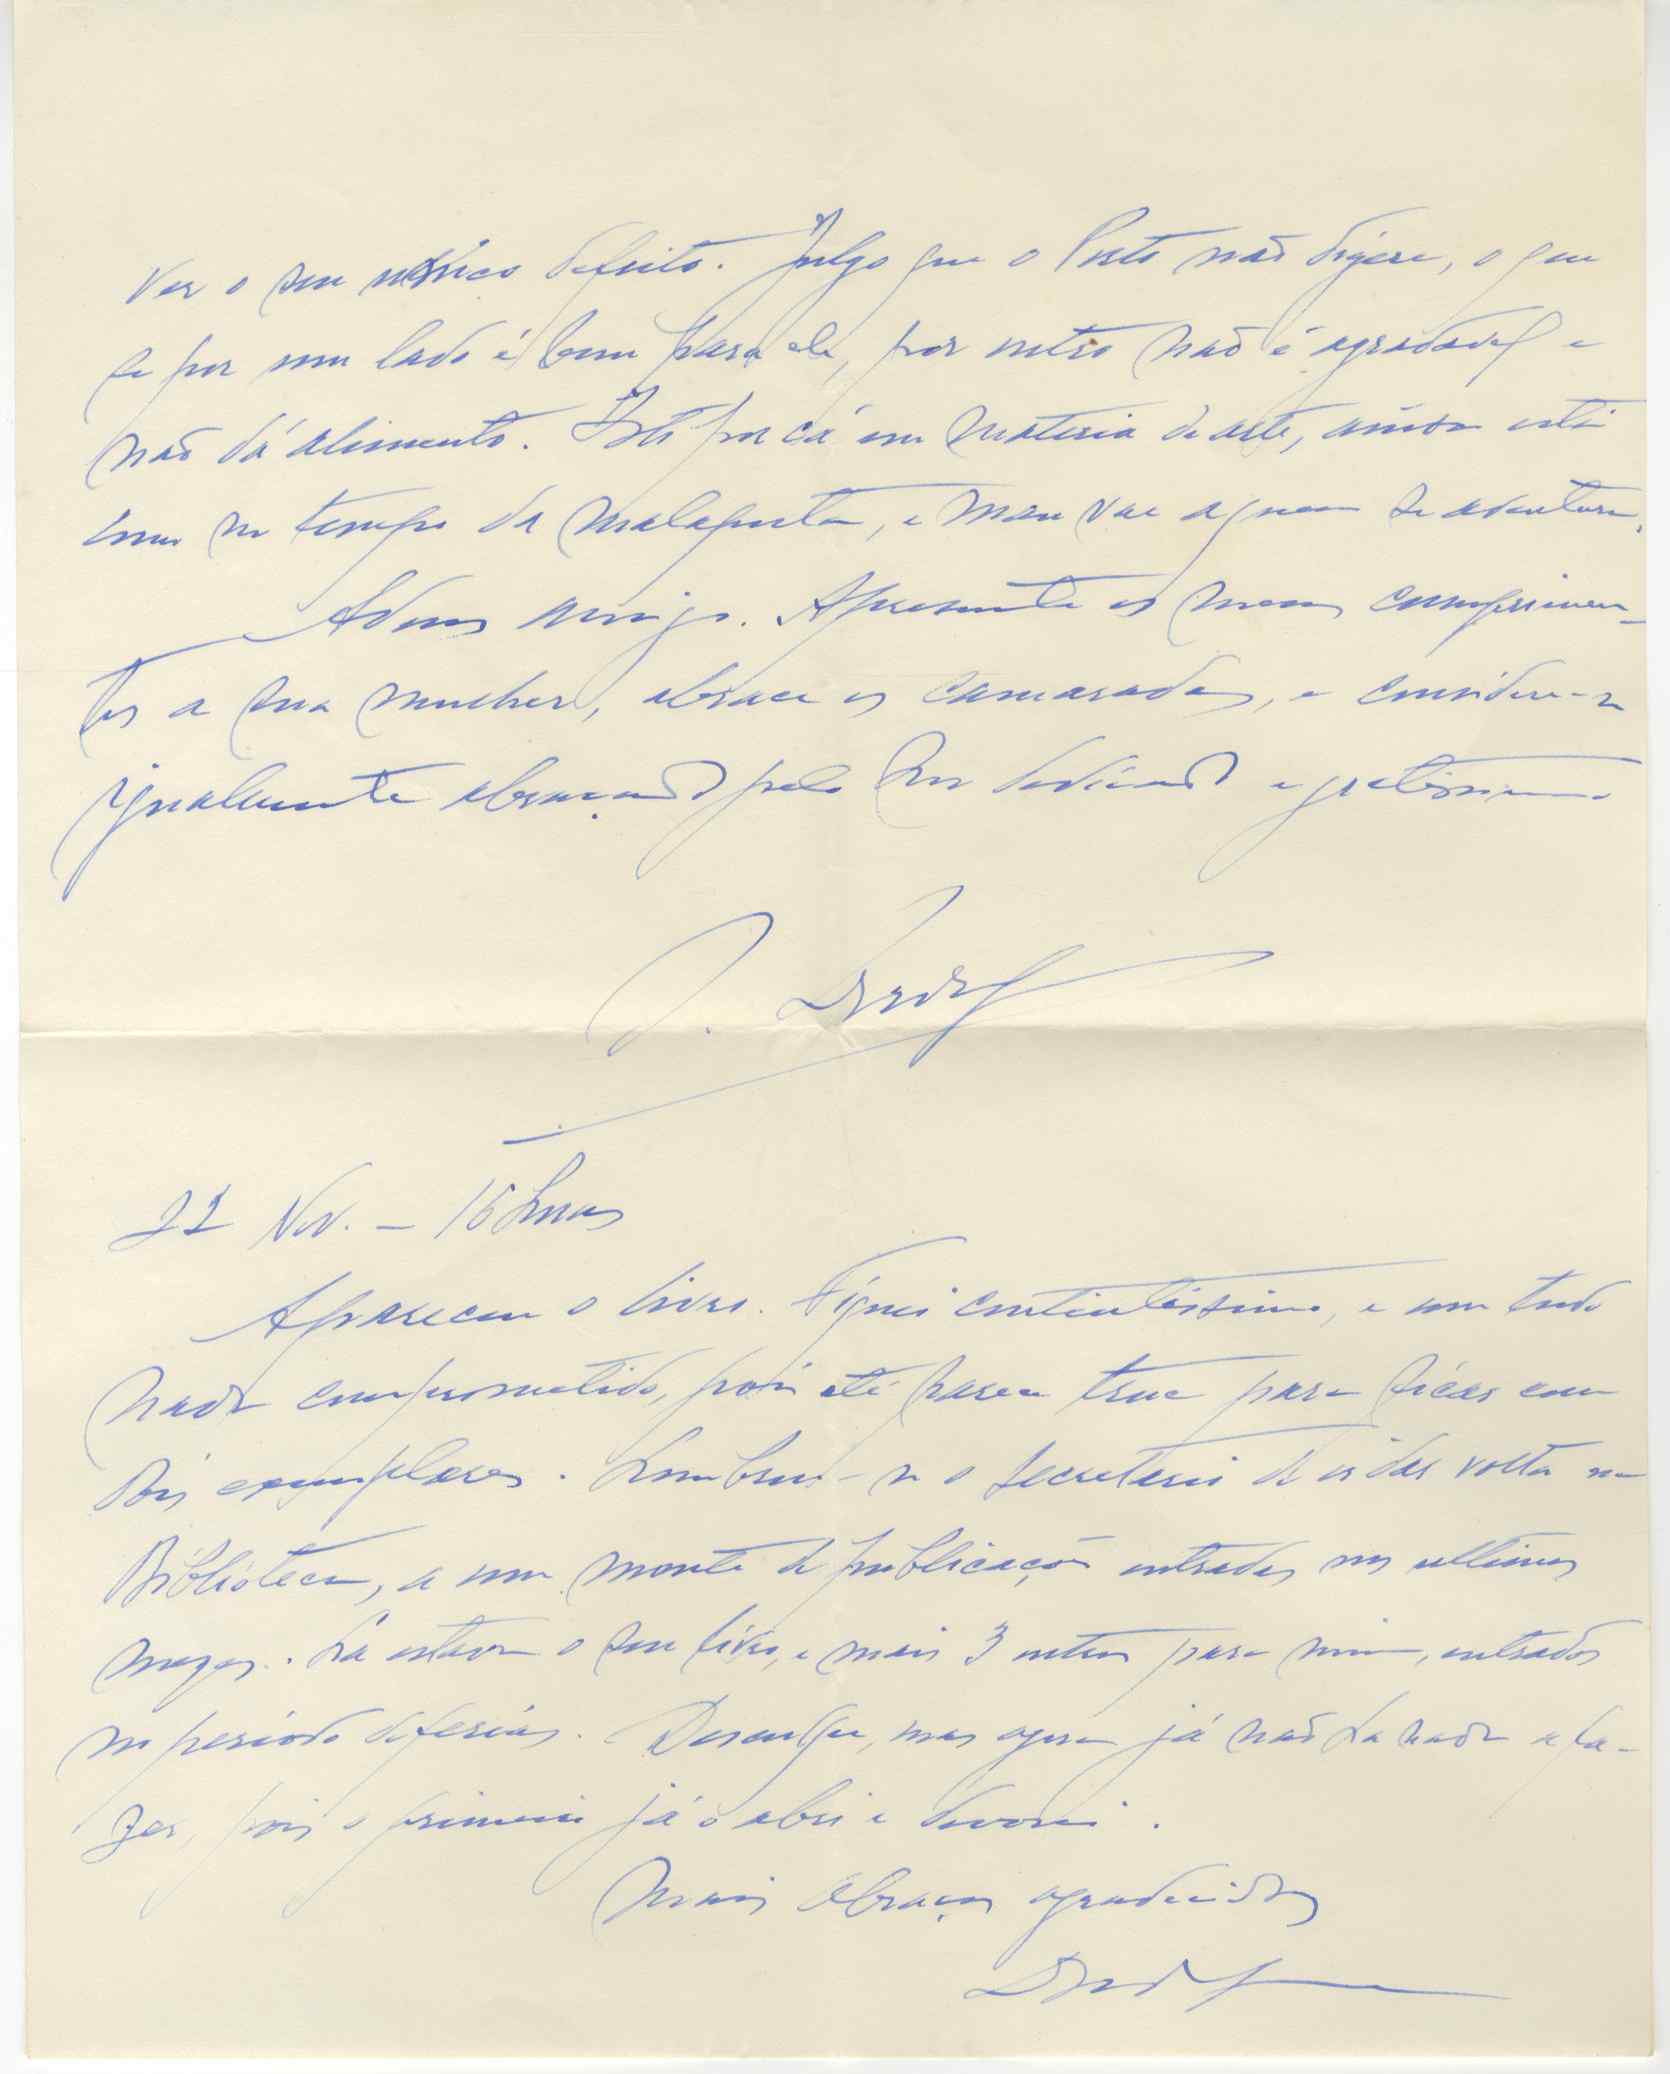 ver o seu unico defeito. Julgo que o Porto não digere, o que
se por um lado é bom para ele, por outro não é agradavel e
não dá alimento. Isto por cá em materia de arte, ainda está
como no tempo da malaposta, e mau vae a quem se aventura.
Adeus amigo. Apresente os meus cumprimen-
tos a sua mulher, abrace os camaradas, e considere-se
igualmente abraçado pelo seu dedicado e gratissimo
22 Nov. – 16 horas
Apareceu o livro. Fiquei contentissimo, e um tudo
nada comprometido, pois até parece truc para ficar com
dois exemplares. Lembrou-se o secretario de ir dar volta na
Biblioteca, a um monte de publicações entradas nos ultimos
mezes. Lá estava o seu livro, e mais 3 outros para mim, entrados
no periodo de ferias. Desculpe, mas agora já não ha nada a fa-
zer, pois o primeiro já o abri e devorei.
Mais abraços agradecidos